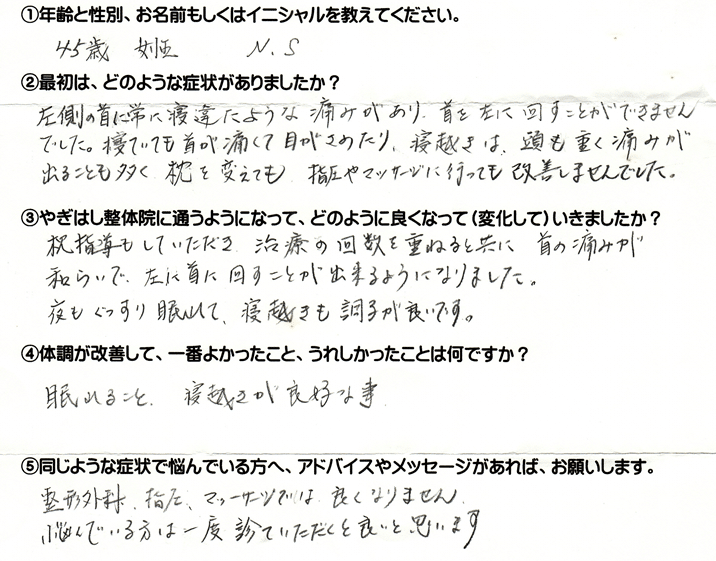 ①年齢と性別、お名前もしくはイニシャルを教えてください。
45歳 女性 N.S
②最初は、どのような症状がありましたか？
左側の首に常に寝違たような痛みがあり、首を左に回すことができません
でした。寝ていても首が痛くて目がさめたり、寝起きは、頭も重く痛みが
出ることも多く、枕を変えても、指圧やマッサージに行っても改善しませんでした。
③やぎはし整体院に通うようになって、どのように良くなって（変化して）いきましたか？
枕指導もしていただき、治療の回数を重ねると共に 首の痛みが
和らいで、左に首に回すことが出来るようになりました。
夜もぐっすり眠れて、寝起きも調子が良いです。
④体調が改善して、一番よかったこと、うれしかったことは何ですか？
眠れること、寝起きが良好な事
⑤同じような症状で悩んでいる方へ、アドバイスやメッセージがあれば、お願いします。
整形外科、指圧、マッサージでは良くなりません。
悩んでいる方は一度診ていただくと良いと思います